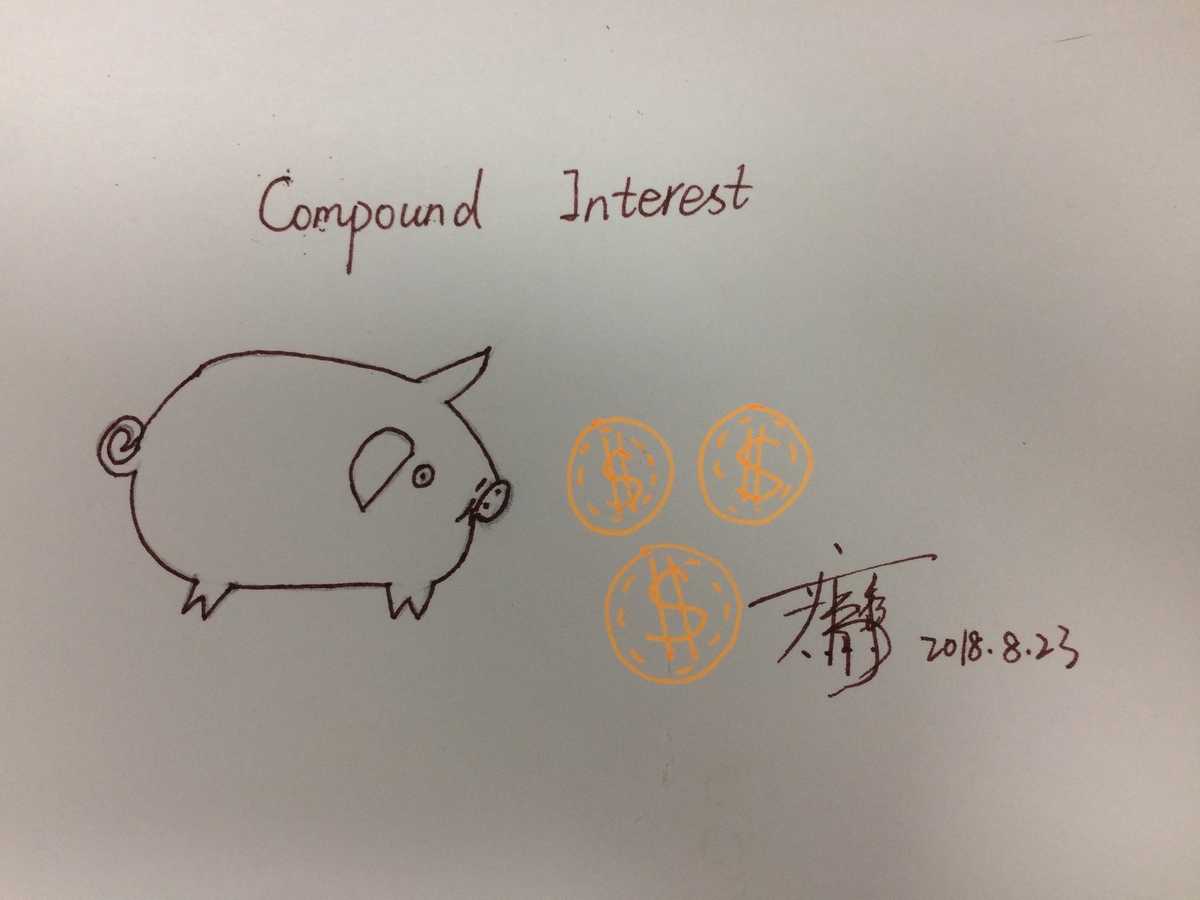 Compound Interest
$ $
$
2018.8.23